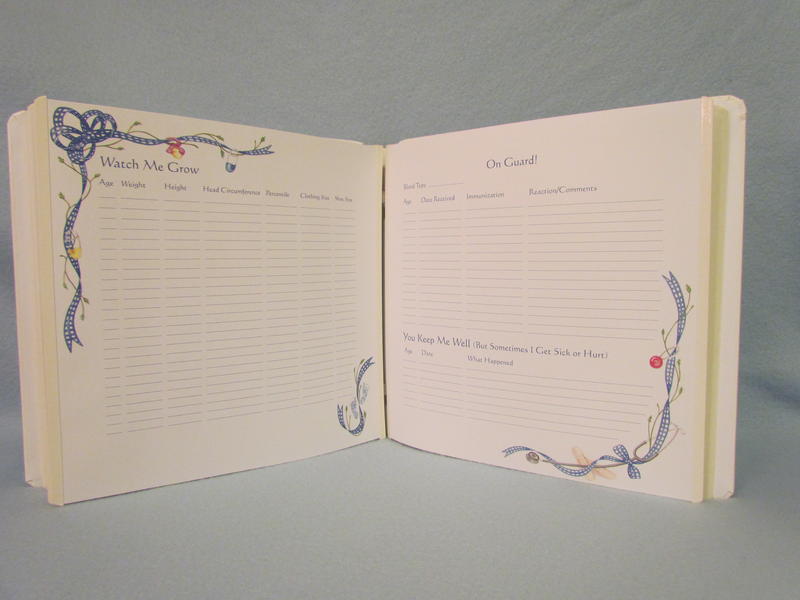 Watch Me Grow
Age Weight Height Head Circumference Percentile Clothing Size Shoe Size
On Guard!
Blood Type
Age Date Received Immunization Reaction/Comments
You Keep Me Well (But Sometimes I Get Sick or Hurt)
Age Date What Happened